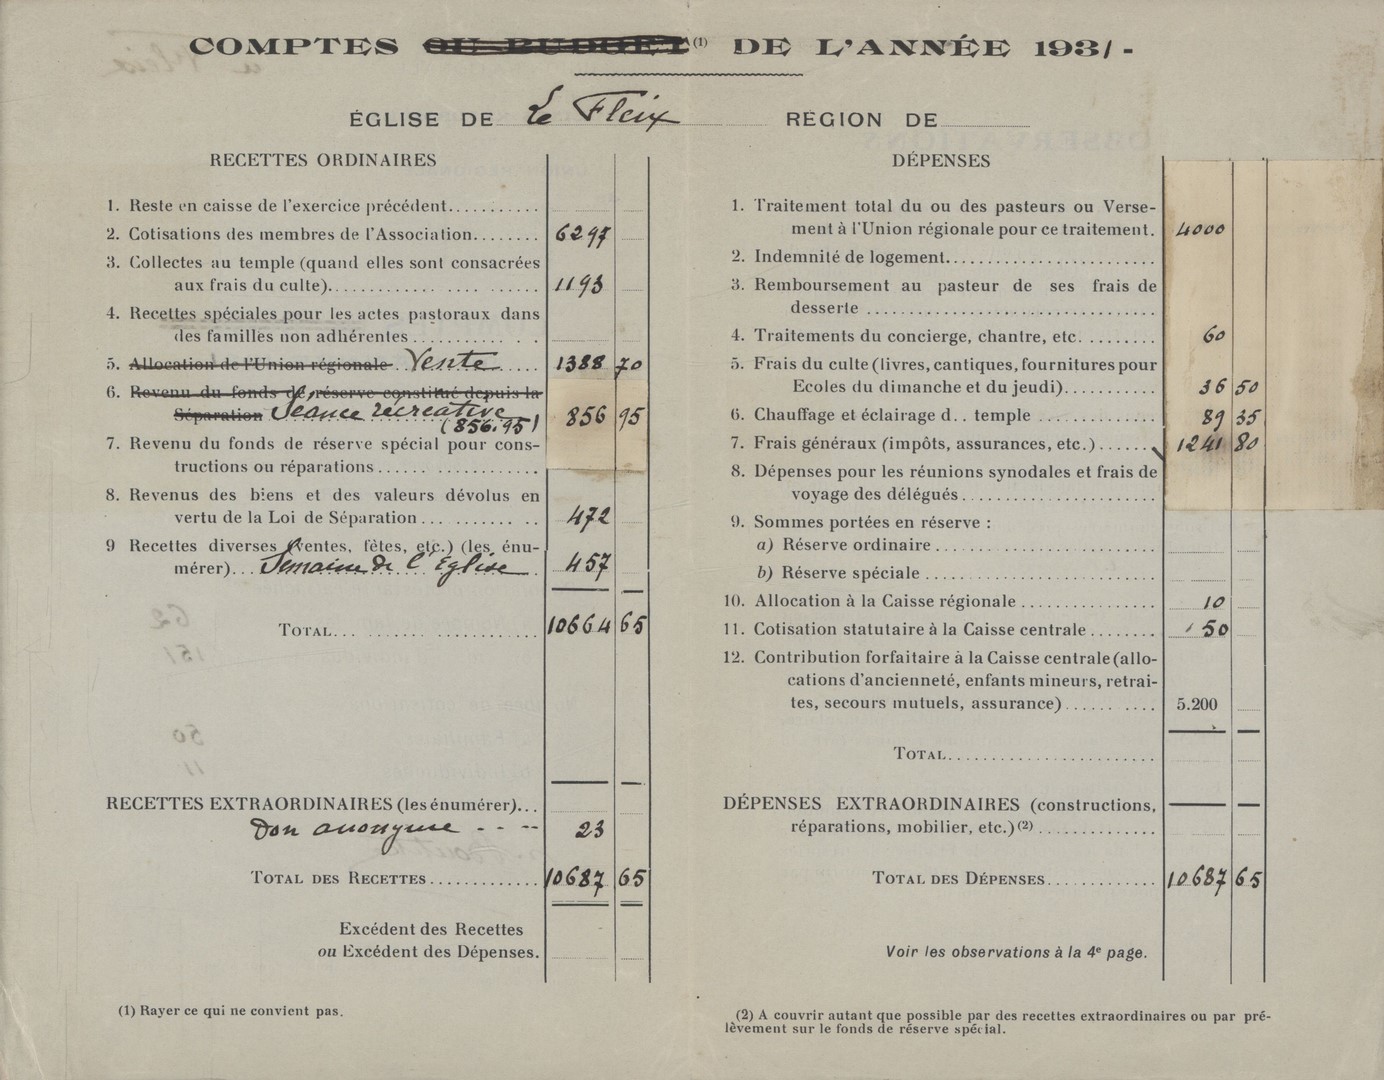 COMPTES OU BUDGET (1) DE L'ANNÉE 1931 -
ÉGLISE DE Le Fleix RÉGION DE
RECETTES ORDINAIRES
1. Reste en caisse de l'exercice précédent
2. Cotisations des membres de l'Association 6297
3. Collectes au temple (quand elles sont consacrées
aux frais du culte) 1193
4. Recettes spéciales pour les actes pastoraux dans
des familles non adhérentes
5. Allocation de l'Union régionale Vente 1388 70
6. Revenu du fonds de réserve constitué depuis la
Séparation Séance récréative 856 95
(856.95)
7. Revenu du fonds de réserve spécial pour cons-
tructions ou réparations
8. Revenus des biens et des valeurs dévolus en
vertu de la Loi de Séparation 472
9 Recettes diverses (ventes, fêtes, etc.) (les énu-
mérer) Semaine de l'Eglise 457
TOTAL 10664 65
RECETTES EXTRAORDINAIRES (les énumérer)
Don anonyme - - -- 23
TOTAL DES RECETTES 10687 65
Excédent des Recettes
ou Excédent des Dépenses.
(1) Rayer ce qui ne convient pas.
DÉPENSES
1. Traitement total du ou des pasteurs ou Verse-
ment à l'Union régionale pour ce traitement. 4000
2. Indemnité de logement
3. Remboursement au pasteur de ses frais de
desserte
4. Traitements du concierge, chantre, etc. 60
5. Frais du culte (livres, cantiques, fournitures pour
Ecoles du dimanche et du jeudi) 36 50
6. Chauffage et éclairage d.. temple 89 35
7. Frais généraux (impôts, assurances, etc.) 1241 80
8. Dépenses pour les réunions synodales et frais de
voyage des délégués
9. Sommes portées en réserve :
a) Réserve ordinaire
b) Réserve spéciale
10. Allocation à la Caisse régionale 10
11. Cotisation statutaire à la Caisse centrale 50
12. Contribution forfaitaire à la Caisse centrale (allo-
cations d'ancienneté, enfants mineurs, retrai-
tes, secours mutuels, assurance) 5.200
TOTAL
DÉPENSES EXTRAORDINAIRES (constructions,
réparations, mobilier, etc.) (2)
TOTAL DES DÉPENSES 10687 65
Voir les observations à la 4e page.
(2) A couvrir autant que possible par des recettes extraordinaires ou par pré-
lèvement sur le fonds de réserve spécial.